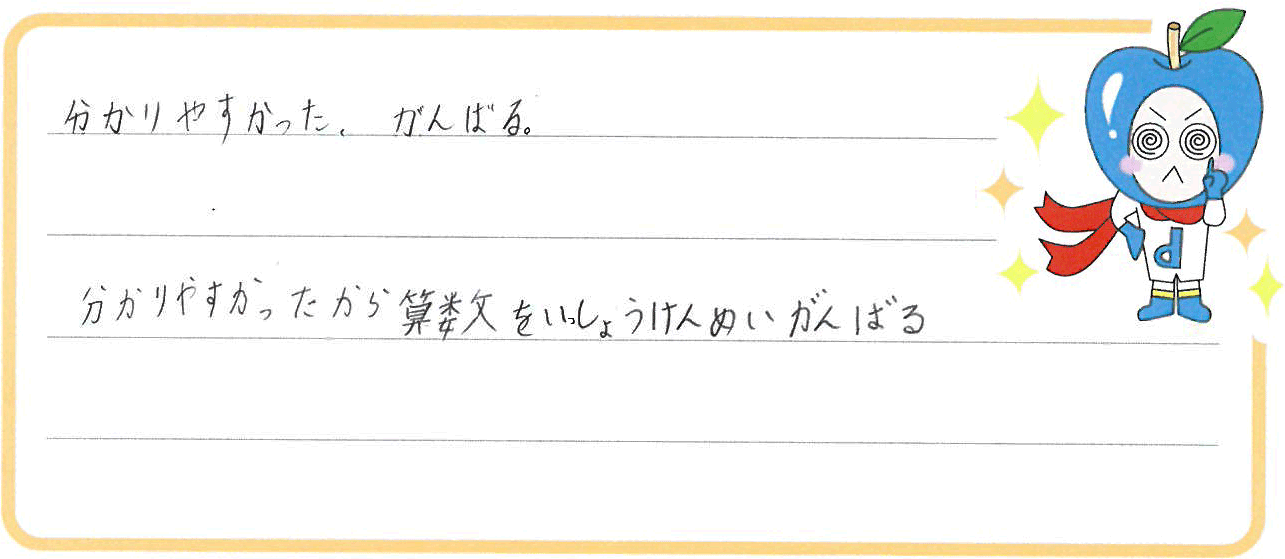 分かりやすかった。 がんばる。
分かりやすかったから算数をいっしょうけんめいがんばる